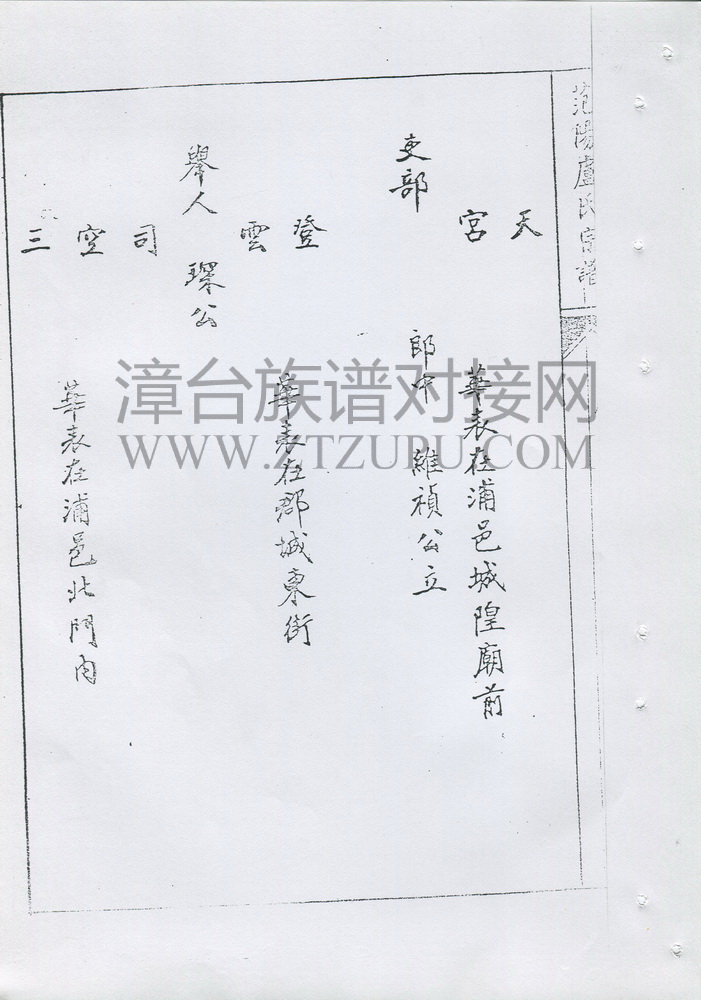 范陽盧氏宗譜
天宮
華表在浦邑城隍廟前
吏部
郎中 維禎公立
登雲
華表在郡城東街
舉人 琛公
司空三
華表在浦邑北門內
漳台族谱对接网
WWW.ZTZUPU.COM